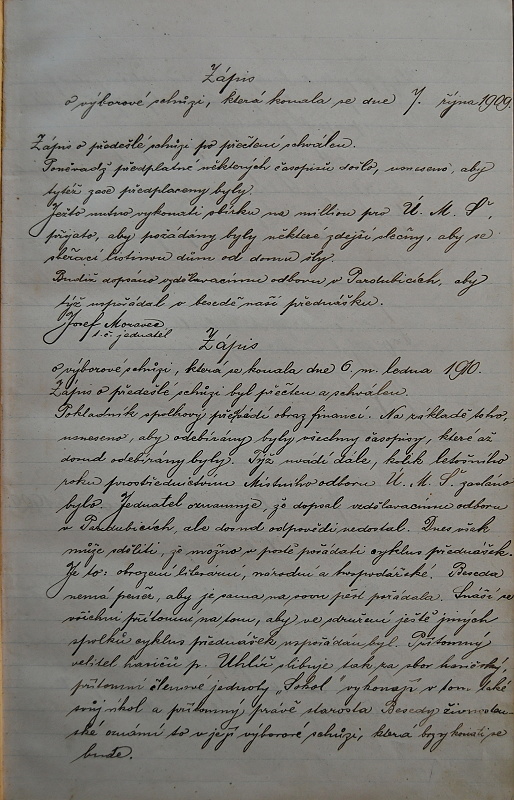 Zápis
o výborové schůzi, která konala se dne 7. října 1909.
Zápis o předešlé schůzi po přečtení schválen.
Poněvadž předplatné některých časopisů došlo, usneseno, aby
tytéž zase předplaceny byly.
Ježto nutno vykonati sbírku na million pro Ú. M. Š.,
přijato, aby požádány byly některé zdejší slečny, aby se
sběrací listinou dům od domu šly.
Budiž dopsáno vzdělavacímu odboru v Pardubicích, aby
týž uspořádal v besedě naší přednášku.
Josef Moravec
t. č. jednatel
Zápis
o výborové schůzi, která se konala dne 6. m. ledna 1910.
Zápis o předešlé schůzi byl přečten a schválen.
Pokladník spolkový předvádí obraz financí. Na základě toho,
usneseno, aby odebírány byly všechny časopisy, které až
dosud odebírány byly. Týž uvádí dále, kolik letošního
roku prostřednictvím Místního odboru Ú. M. Š. zasláno
bylo. Jednatel oznamuje, že dopsal vzdělavacímu odboru
v Pardubicích, ale dosud odpovědi nedostal. Dnes však
může sděliti, že možno v poště pořádati cyklus přednášek.
Je to: obrození literarní, národní a hospodářské. Beseda
nemá peněz, aby je sama na svou pěst pořádala. Snáší se
všichni přítomní na tom, aby ve sdružení ještě jiných
spolků cyklus přednášek uspořádán byl. Přítomný
velitel hasičů p. Uhlíř slibuje tak za sbor hasičský,
přítomní členové jednoty „Sokol" vykonají v tom také
svůj úkol a přítomný právě starosta Besedy živnosten-
ské oznámí to v její výborové schůzi, která brzy konati se
bude.